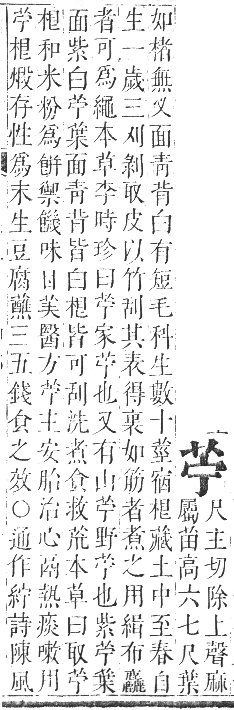 苧
尺主切除上聲麻
屬苗高六七尺葉
如楮無叉面靑背白有短毛科生數十莖宿根藏土中至春自
生一歲三刈剝取皮以竹刮其表得裏如筋者煮之用緝布麤
者可爲繩本草李時珍曰苧家苧也又有山苧野苧也紫苧葉
面紫白苧葉面靑背皆白根皆可刮洗煮食救荒本草曰取苧
根和米粉爲餠禦饑味甘美醫方苧主安胎治心鬲熱痰嗽用
苧根煅存性爲末生豆腐蘸三五錢食之效○通作紵詩陳風